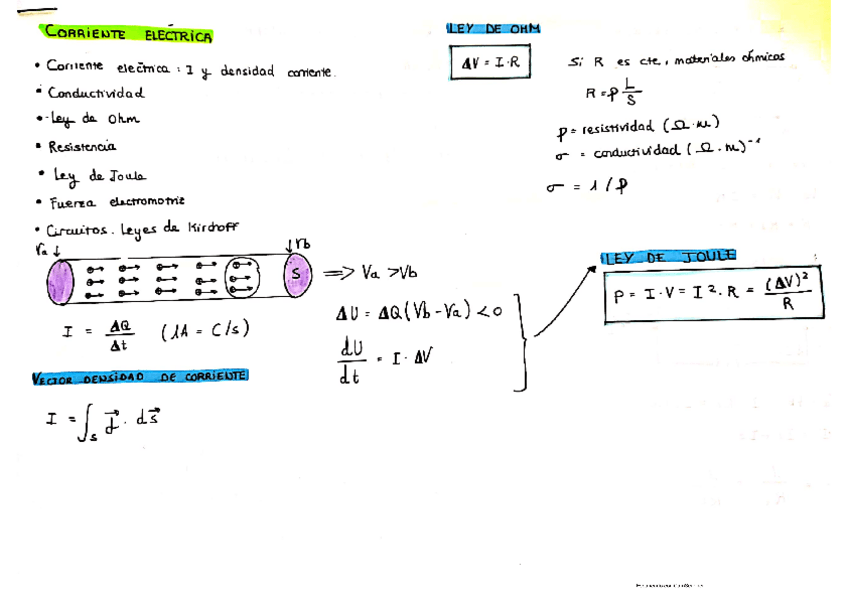 CORRIENTE ELÉCTRICA
• Corriente eléctrica : I y densidad corriente.
• Conductividad
• Ley de Ohm
• Resistencia
• Ley de Joule
• Fuerza electromotriz
• Circuitos. Leyes de Kirchoff
Va ↓ ↓ Vb
S ⇒ Va > Vb
I = ΔQ/Δt (1A = C/s)
ΔU = ΔQ (Vb - Va) < 0
dU/dt = I · ΔV
VECTOR DENSIDAD DE CORRIENTE
I = ∫s J⃗ · ds⃗
LEY DE OHM
ΔV = I · R
Si R es cte, materiales óhmicos
R = ρ L/S
ρ = resistividad (Ω · m)
σ = conductividad (Ω · m)⁻¹
σ = 1 / ρ
LEY DE JOULE
P = I · V = I² · R = (ΔV)²/R